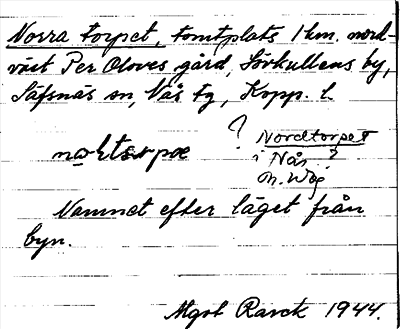 Norra torpet, tomtplats 1 km. nord-
väst Per Oloves gård, Sörkullens by,
Säfsnäs sn, Nås tg, Kopp. l.
? Nordtorpet
i Nås ?
Namnet efter läget från
byn.
Mgbt Ranck 1944.